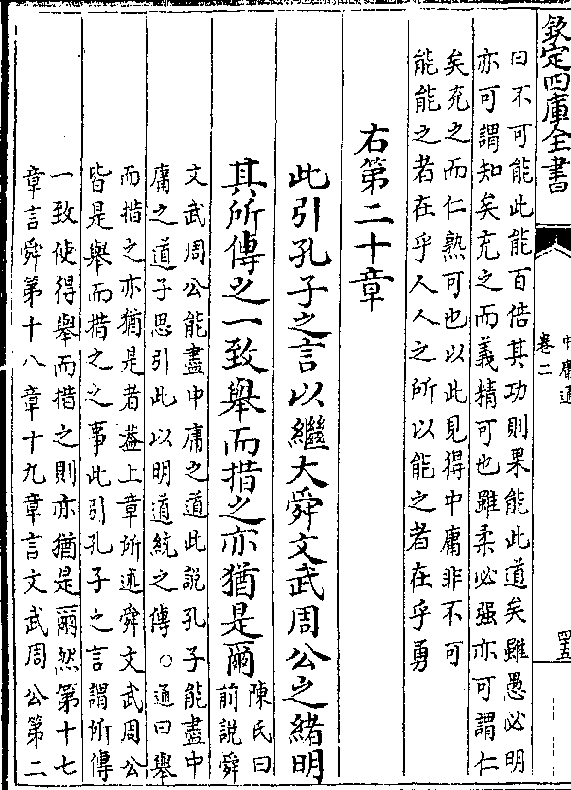 欽定四庫全書
中庸通
卷二
四五
曰不可能此能百倍其功則果能此道矣雖愚必明
亦可謂知矣充之而義精可也雖柔必强亦可謂仁
矣充之而仁熟可也以此見得中庸非不可
能能之者在乎人人之所以能之者在乎勇
右第二十章
此引孔子之言以繼大舜文武周公之緒明
其所傳之一致舉而措之亦猶是爾
陳氏曰
前説舜
文武周公能盡中庸之道此説孔子能盡中
庸之道子思引此以明道統之傳○通曰舉
而措之亦猶是者葢上章所述舜文武周公
皆是舉而措之之事此引孔子之言謂所傳
一致使得舉而措之則亦猶是爾然第十七
章言舜第十八章十九章言文武周公第二